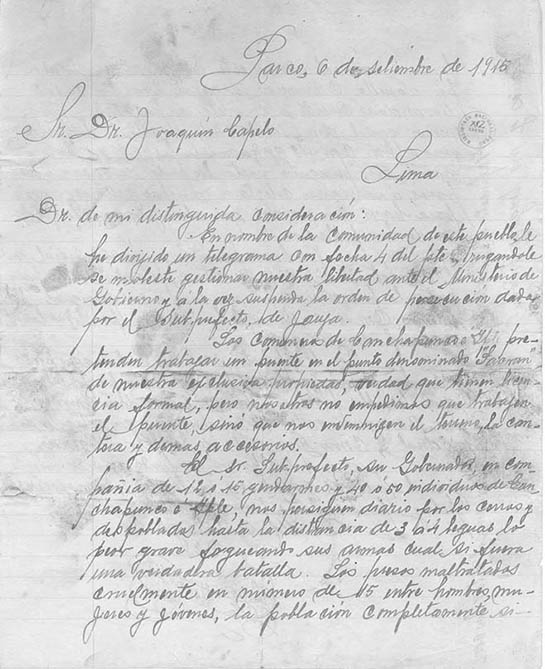 Parco, 6 de setiembre de 1915
Sr. Dr. Joaquín Capelo
Lima
Dr. de mi distinguida consideración:
En nombre de la comunidad de este pueblo, le
he dirijido un telegrama con fecha 4 del pte. rugandole
se moleste gestionar nuestra libertad ante el Ministerio de
Gobierno y a la vez suspenda la orden de persecución dada
por el Sub.prefecto, de Jauja.
Los Comuneros de Canchapunco pre-
tenden trabajar un puente en el punto denominado
de nuestra exclusiva propiedad, verdad que tienen licen-
cia formal, pero nosotros no empedimos que trabajen
el puente, sinó que nos indemnigen el terreno, la can-
tera y demas accesorios.
El Sr. Sub.prefecto, su Gobernador, en com-
pañia de 12 ó 15 gendarmes y 40 ó 50 individuos de Can-
chapunco é, nos persiguen diario por los cerros y
despoblados hasta la distancia de 3 á 4 leguas, lo
peor grave fogueando sus armas cual si fuera
una verdadera batalla. Los presos maltratados
cruelmente en número de 15 entre hombres, mu-
jeres y jóvenes, la población completamente si-